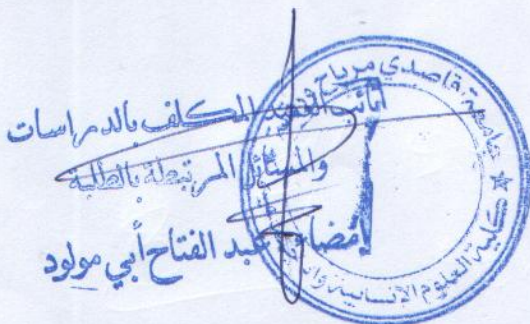 نائب العميد المكلف بالدراسات
والمسائل المرتبطة بالطلبة
إمضاء: عبد الفتاح أبي مولود
جامعة قاصدي مرباح
كلية العلوم الإنسانية